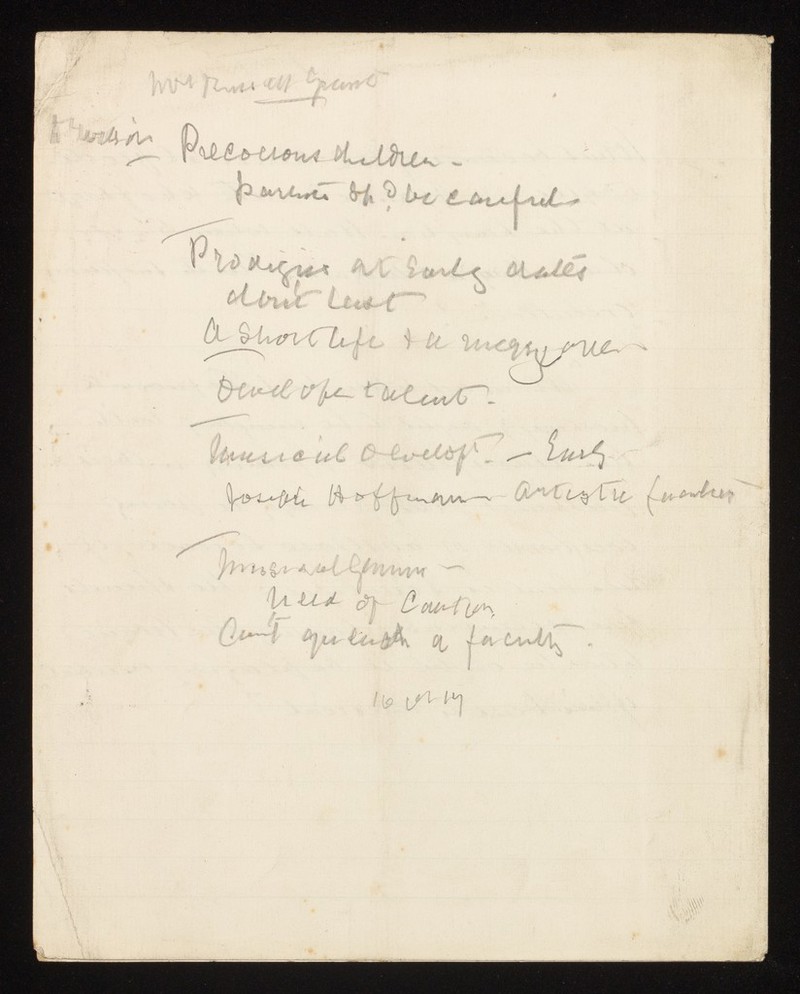 Precocious Children -
parents shd be careful
Prodigies at Early dates
don't last
A Short life & a merry one
Develope talent -
Musical Develop<sup>t</sup>. - Early
Joseph Hoffmann - Artistic
Musical Genius -
Need of Caution
Can't quench a faculty.
16 or 17